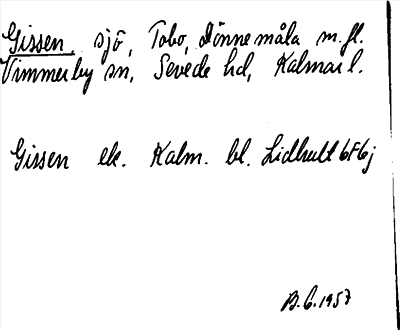 Gissen, sjö, Tobo, Dönnemåla m.fl.
Vimmerby sn, Sevede hd, Kalmar l.
Gissen ek. Kalm. bl. Lidhult 6F6j
B.G. 1957